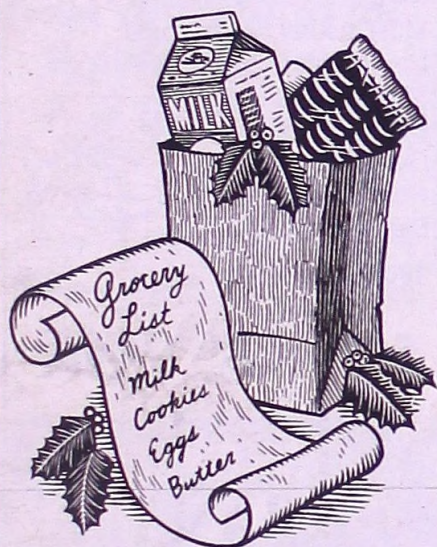 MILK
Grocery
List
Milk
Cookies
Eggs
Butter